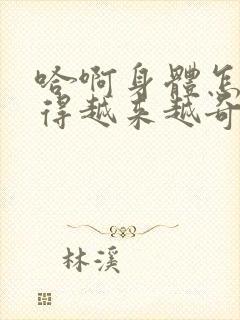 哈啊身體怎
得越来越奇
林溪